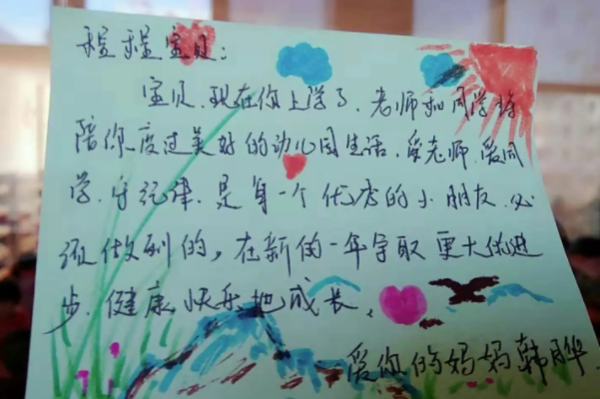 程程宝贝：
宝贝.现在你上学了.老师和同学将
陪你度过美好的幼儿园生活.爱老师.爱同
学.守纪律.是每一个优秀的小朋友.必
须做到的，在新的一年争取更大的进
步.健康快乐地成长、
爱你的妈妈韩